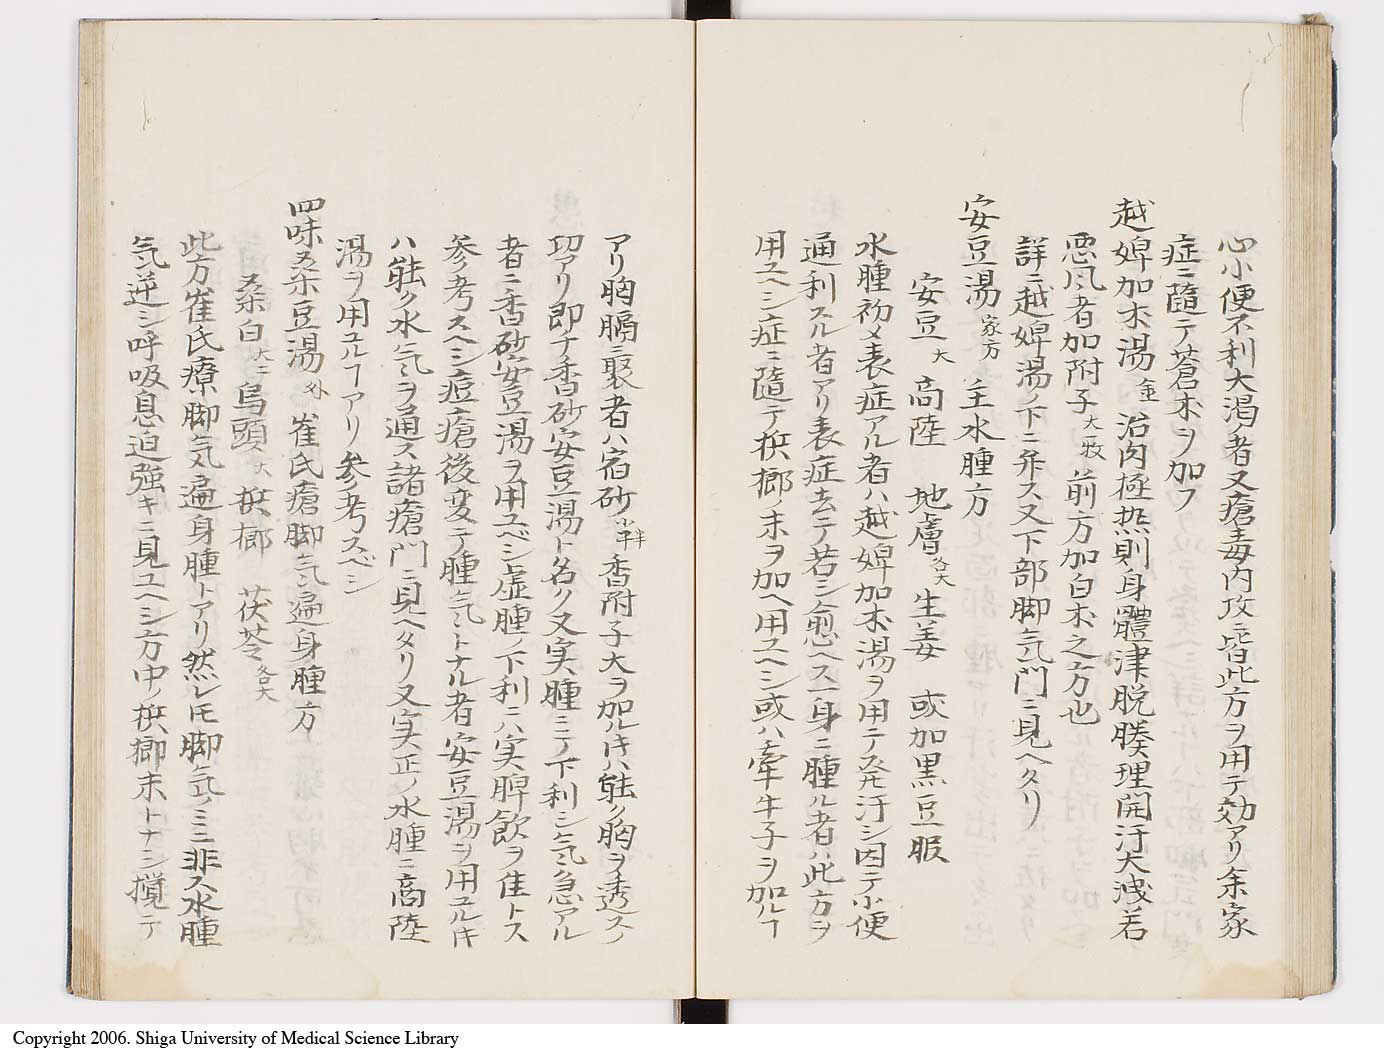 心小便不利大渇ノ者又瘡毒内攻ニ皆此方ヲ用テ効アリ余家
症ニ随テ蒼朮ヲ加フ
越婢加朮湯 金 治肉極热則身體津脱腠理開汗大洩若
悪风者加附子大牧前方加白朮之方也
詳ニ越婢湯ノ下ニ弁ス又下部脚气門ニ見ヘタリ
安豆湯家方 主水腫方
安豆大 商陸 地膚各大 生姜 或加黒豆服
水腫初メ表症アル者ハ越婢加朮湯ヲ用テ発汗シ因テ小便
通利スル者アリ表症去テ若シ愈ヘス一身ニ腫ル者ハ此方ヲ
用ユヘシ症ニ隨テ梹榔末ヲ加ヘ用ユヘシ或ハ牽牛子ヲ加ルヿ
アリ胸膈ニ聚者ハ宿砂小半香附子大ヲ加ル圧ハ能ク胸ヲ透スノ
功アリ即チ香砂安豆湯ト名ク又实腫ミノ下利シ气急アル
者ニ香砂安豆湯ヲ用ユベシ虚腫ノ下利ニハ实脾飲ヲ佳トス
参考スヘシ痘瘡後変テ腫气トナル者安豆湯ヲ用ユル圧
ハ能ク水气ヲ通ス諸瘡門ニ見ヘタリ又实正ノ水腫ニ商陸
湯ヲ用ユルヿアリ参考スベシ
四味桒豆湯 外 崔氏瘡脚气遍身腫方
桒白大二烏頭大 梹榔 茯苓各大
此方崔氏療脚气遍身腫トアリ然レ圧脚气ノミニ非ス水腫
气逆シ呼吸息迫強キニ見ユヘシ方中ノ梹榔末トナシ攪テ
Copyright 2006. Shiga University of Medical Science Library